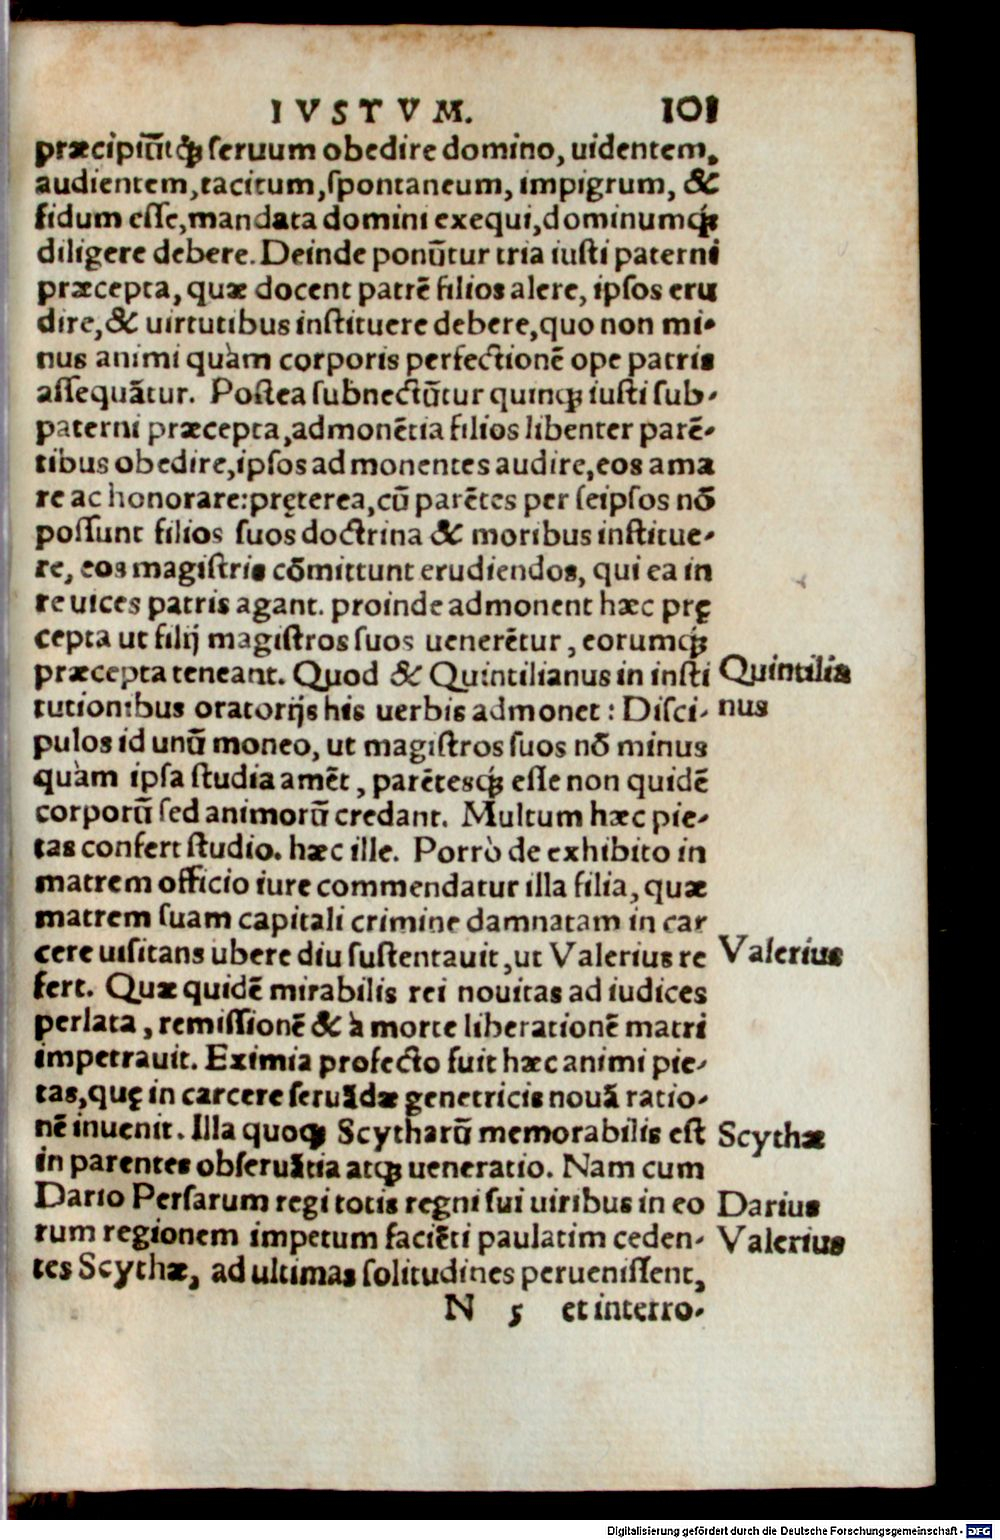 IVSTVM. 101
præcipiũtq́ꝫ seruum obedire domino, uidentem,
audientem, tacitum, spontaneum, impigrum, &
fidum esse, mandata domini exequi, dominumq́ꝫ
diligere debere. Deinde ponũtur tria iusti paterni
præcepta, quæ docent patrẽ filios alere, ipsos eru
dire, & uirtutibus instituere debere, quo non mi-
nus animi quàm corporis perfectionẽ ope patris
assequãtur. Postea subnectũtur quinqꝫ iusti sub-
paterni præcepta, admonẽtia filios libenter parẽ-
tibus obedire, ipsos admonentes audire, eos ama
re ac honorare: pręterea, cũ parẽtes per seipsos nõ
possunt filios suos doctrina & moribus institue-
re, eos magistris cõmittunt erudiendos, qui ea in
re uices patris agant. proinde admonent hæc prę
cepta ut filij magistros suos uenerẽtur, eorumq́ꝫ
præcepta teneant. Quod & Quintilianus in insti
tutionibus oratorijs his uerbis admonet: Disci-
pulos id unũ moneo, ut magistros suos nõ minus
quàm ipsa studia amẽt, parẽtesq́ꝫ esse non quidẽ
corporũ sed animorũ credant. Multum hæc pie-
tas confert studio. hæc ille. Porrò de exhibito in
matrem officio iure commendatur illa filia, quæ
matrem suam capitali crimine damnatam in car
cere uisitans ubere diu sustentauit, ut Valerius re
fert. Quæ quidẽ mirabilis rei nouitas ad iudices
perlata, remissionẽ & à morte liberationẽ matri
impetrauit. Eximia profecto fuit hæc animi pie-
tas, quę in carcere seruãdæ genetricis nouã ratio-
nẽ inuenit. Illa quoqꝫ Scytharũ memorabilis est
in parentes obseruãtia atqꝫ ueneratio. Nam cum
Dario Persarum regi totis regni sui uiribus in eo
rum regionem impetum faciẽti paulatim ceden-
tes Scythæ, ad ultimas solitudines peruenissent,
N 5 et interro-
Quintilia
nus
Valerius
Scythæ
Darius
Valerius
Digitalisierung gefördert durch die Deutsche Forschungsgemeinschaft - DFG